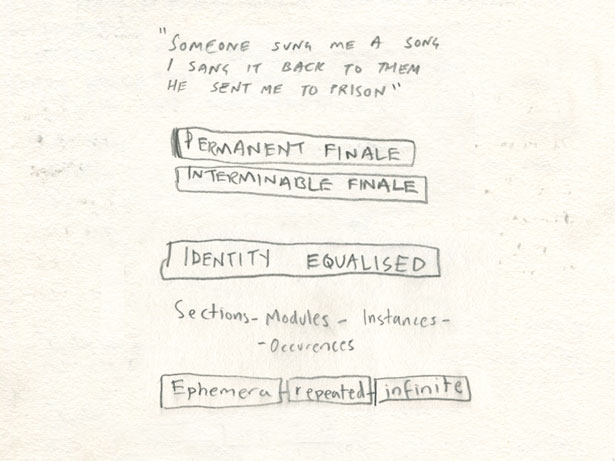 "SOMEONE SUNG ME A SONG
I SANG IT BACK TO THEM
HE SENT ME TO PRISON"
PERMANENT FINALE
INTERMINABLE FINALE
IDENTITY EQUALISED
Sections - Modules - Instances -
- Occurences
Ephemera - repeated - infinite